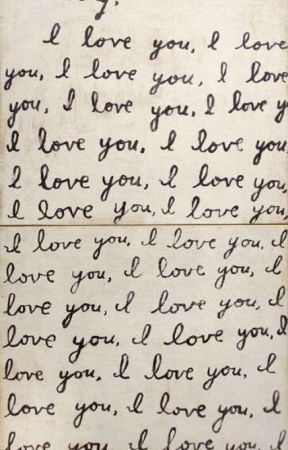 I love you, I love
you, I love you, I love
you, I love you, I love y
I love you, I love you,
I love you, I love you,
I love you, I love you,
I love you, I love you, I
love you, I love you, I
love you, I love you, I
love you, I love you, I
love you, I love you, I
love you, I love you, I
love you, I love you, I